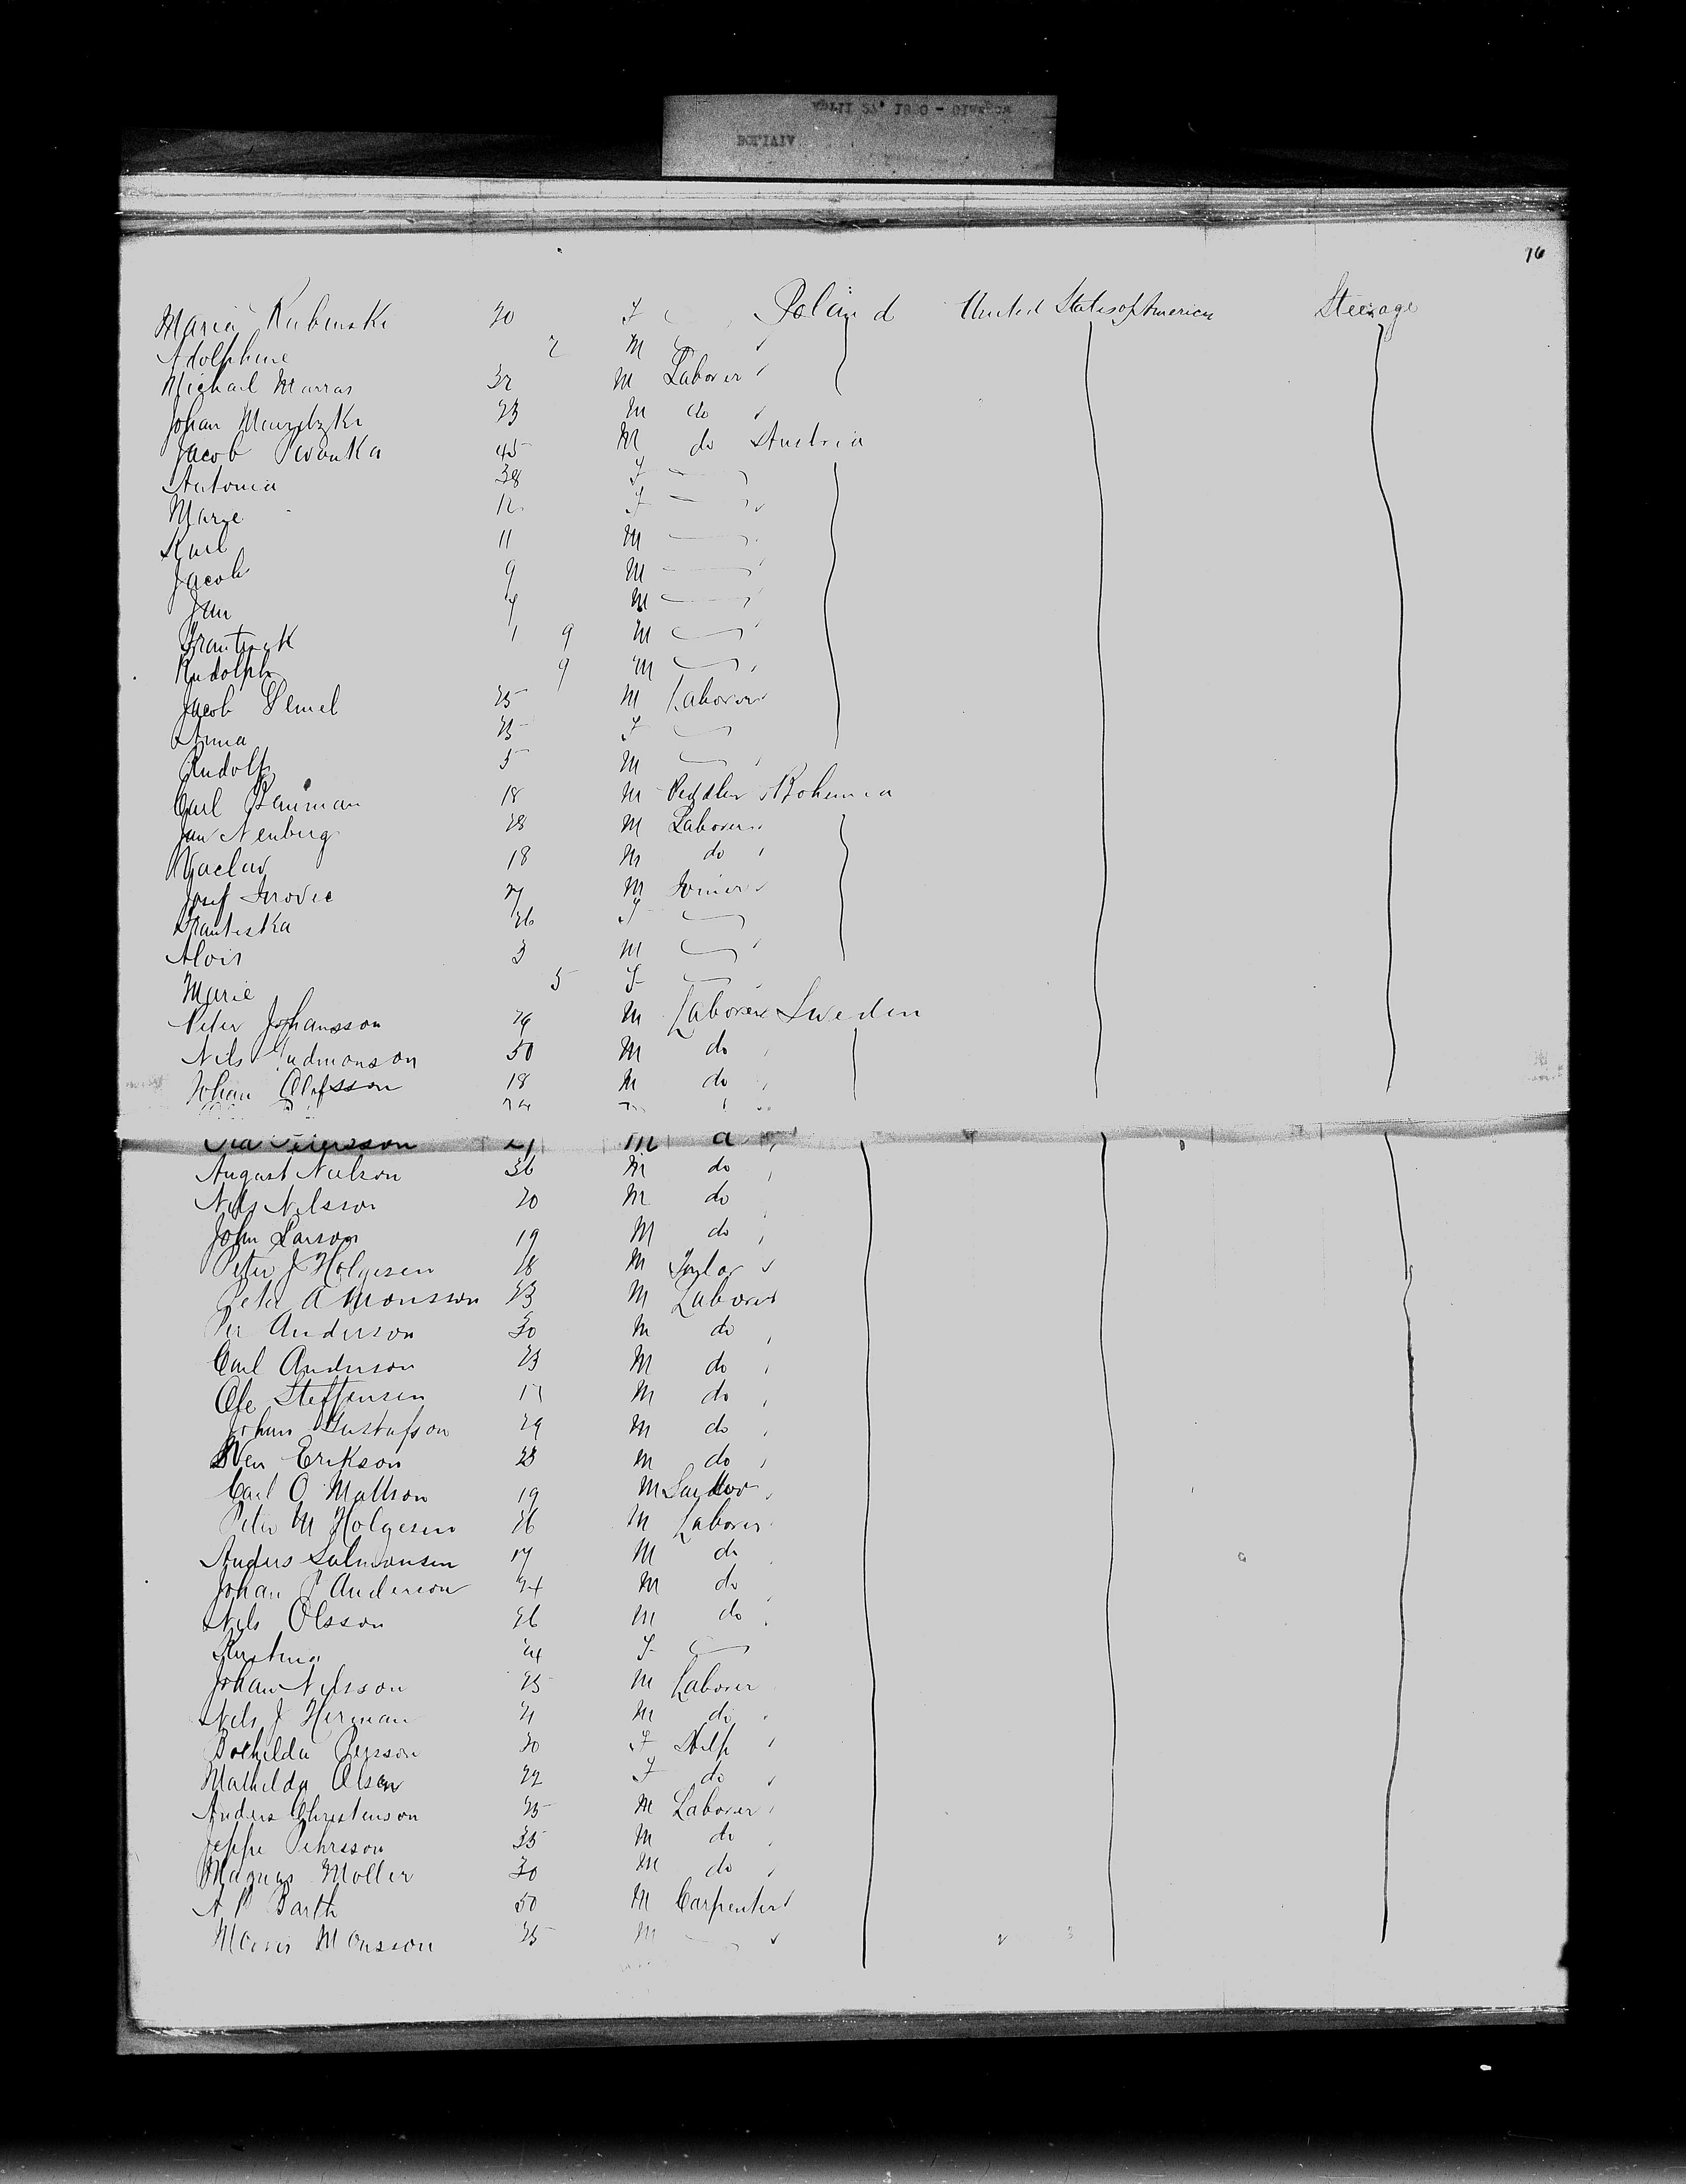 76
Maria Rubinski 20 F Poland United States of America Steerage
Adolphine 2 M
Michael Marras 32 M Laborer
Johan 23 M do
Jacob Pivonka 45 M do Austria
Antonia 38 F
Marye 12 F
Karl 11 M
Jacob 9 M
Jan 4 M
Frantisek 1 9 M
Rudolph 9 M
Jacob 25 M Laborer
Anna 25 F
Rudolf 5 M
Carl Bauman 18 M Peddler Bohemia
Jan Nenberg 28 M Laborer
Vaclav 18 M do
Josef 27 M Joiner
Frantiska 26 F
Alois 3 M
Marie 5 F
Peter Johansson 29 M Laborer Sweden
Nils Gudmonson 50 M do
Johan Olafsson 18 M do
Petersson M
August Nielson 36 M do
Nils Nilsson 20 M do
John Larson 19 M do
Peter J Holgesen 18 M Taylor
Peter A Monsson 23 M Laborer
Per Anderson 30 M do
Carl Anderson 23 M do
Ole Steffensen M do
Johan Gustafson 29 M do
Sven Erikson 23 M do
Carl O Mattson 19 M
Peter M Holgesen 26 M Laborer
Anders Salmonsen 17 M do
Johan P Anderson 24 M do
Nils Olsson 26 M do
Kirstina 24 F
Johan Nilsson 25 M Laborer
Nils J Herman 21 M do
Bothilda Persson 30 F Help
Mathilda Olsen 22 F do
Anders Christenson 25 M Laborer
Jeppe Pehrsson 35 M do
Magnus Moller 30 M do
A P Barth 50 M Carpenter
Monsson 25 M